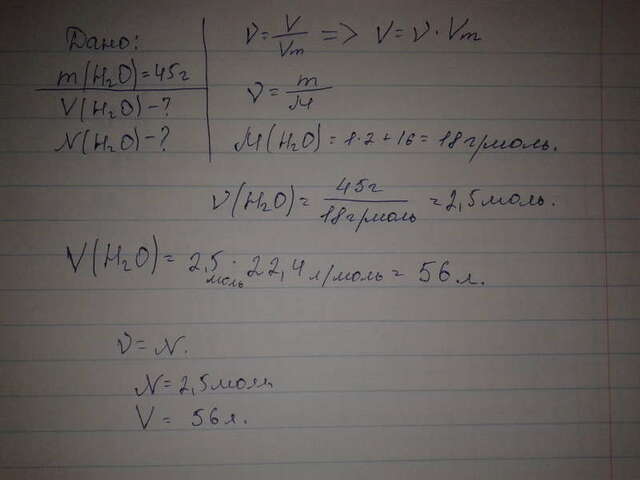 Дано:
m(H₂O)=45г
V(H₂O)-?
N(H₂O)-?
ν=V/Vm => V=ν·Vm
ν=m/M
M(H₂O)=1·2+16=18г/моль.
ν(H₂O)=45г/18г/моль=2,5моль.
V(H₂O)=2,5моль·22,4л/моль=56л.
ν=N.
N=2,5моль
V=56л.